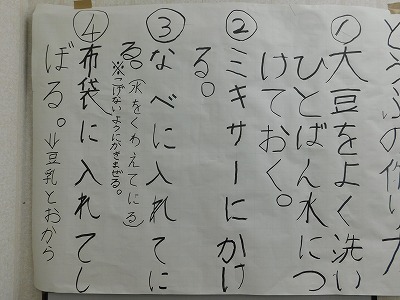 とうふの作り方
①大豆をよく洗い
ひとばん水につ
けておく。
②ミキサーにかけ
る。
③なべに入れてに
る。(水をくわえてにる)
※こげないようにかきまぜる。
④布袋に入れてし
ぼる。→豆乳とおから